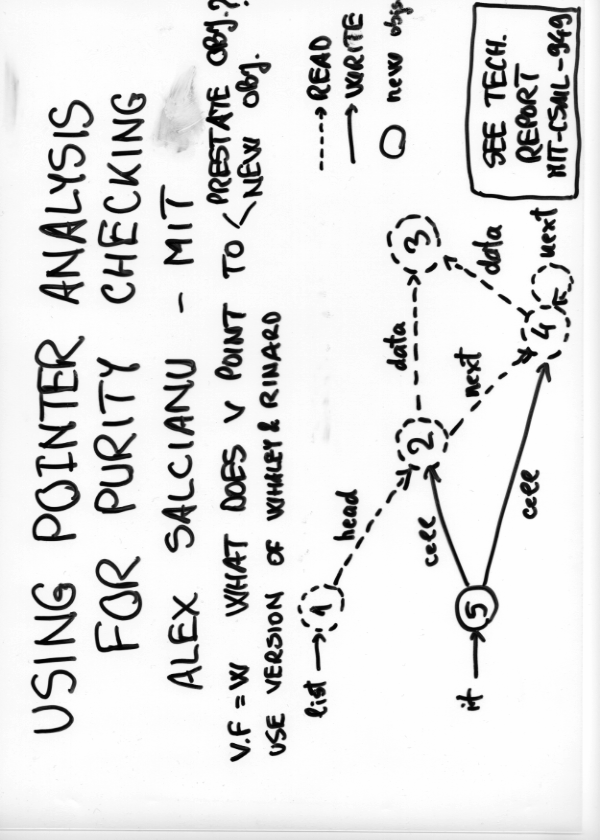 USING POINTER ANALYSIS
FOR PURITY CHECKING
ALEX SALCIANU - MIT
V.F = W WHAT DOES V POINT TO < PRESTATE OBJ.?
NEW OBJ.
USE VERSION OF WHALEY & RINARD
READ
WRITE
new obj
list
1
head
2
data
3
next
data
4
next
cell
cell
it
5
SEE TECH.
REPORT
MIT-CSAIL-949